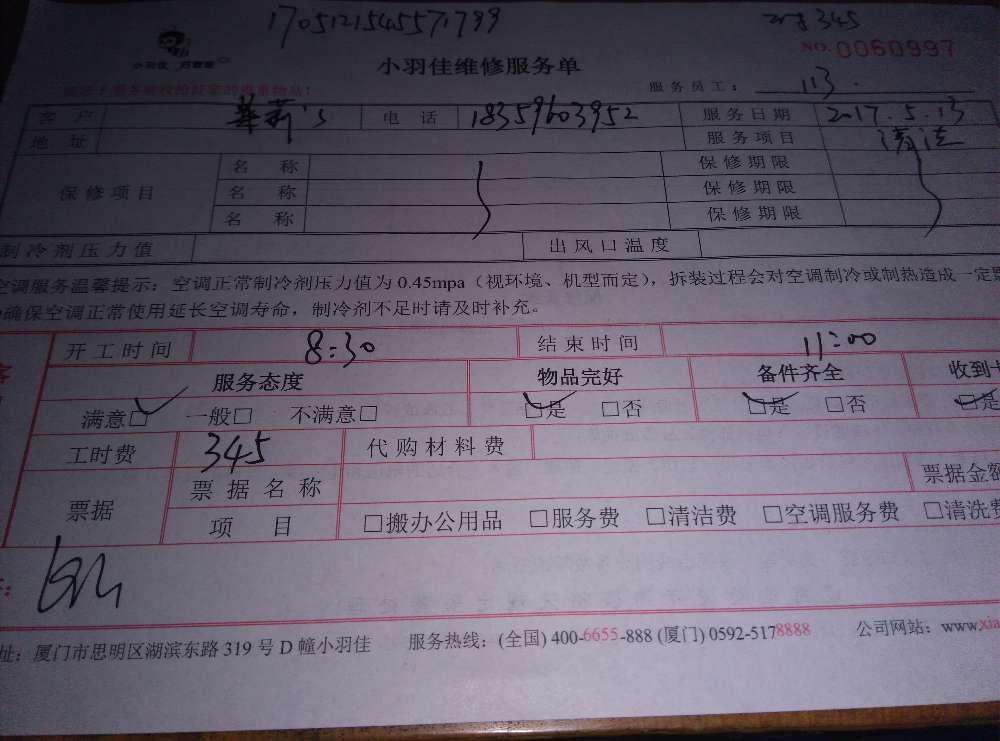 1705121545571799
345
NO. 0060997
小羽佳维修服务单
服务员工： 113
客户 电话 18359603952 服务日期 2017.5.13
地址 服务项目 清洁
保修项目 名称 保修期限
名称 保修期限
名称 保修期限
制冷剂压力值 出风口温度
空调服务温馨提示：空调正常制冷剂压力值为 0.45mpa（视环境、机型而定），拆装过程会对空调制冷或制热造成一定
确保空调正常使用延长空调寿命，制冷剂不足时请及时补充。
开工时间 8:30 结束时间 11:00
服务态度 物品完好 备件齐全 收到
满意□ 一般□ 不满意□ □是 □否 □是 □否 □是
工时费 345 代购材料费
票据 票据名称 票据金额
项目 □搬办公用品 □服务费 □清洁费 □空调服务费 □清洗费
址：厦门市思明区湖滨东路 319 号 D 幢小羽佳 服务热线：(全国) 400-6655-888 (厦门) 0592-5178888 公司网站：www.xia